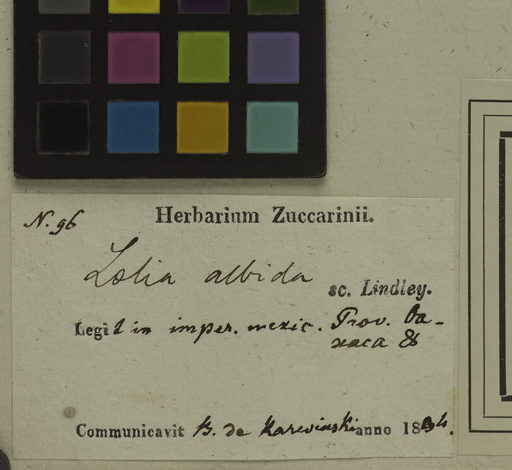 N. 96
Herbarium Zuccarinii.
Lælia albida
sc. Lindley.
Legit in imper. mexic. Prov. Oa-
xaca &
Communicavit B. de Karwinski anno 18